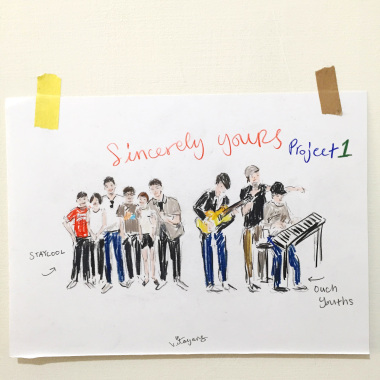 Sincerely yours
Project 1
STAYCOOL
ouch
youths